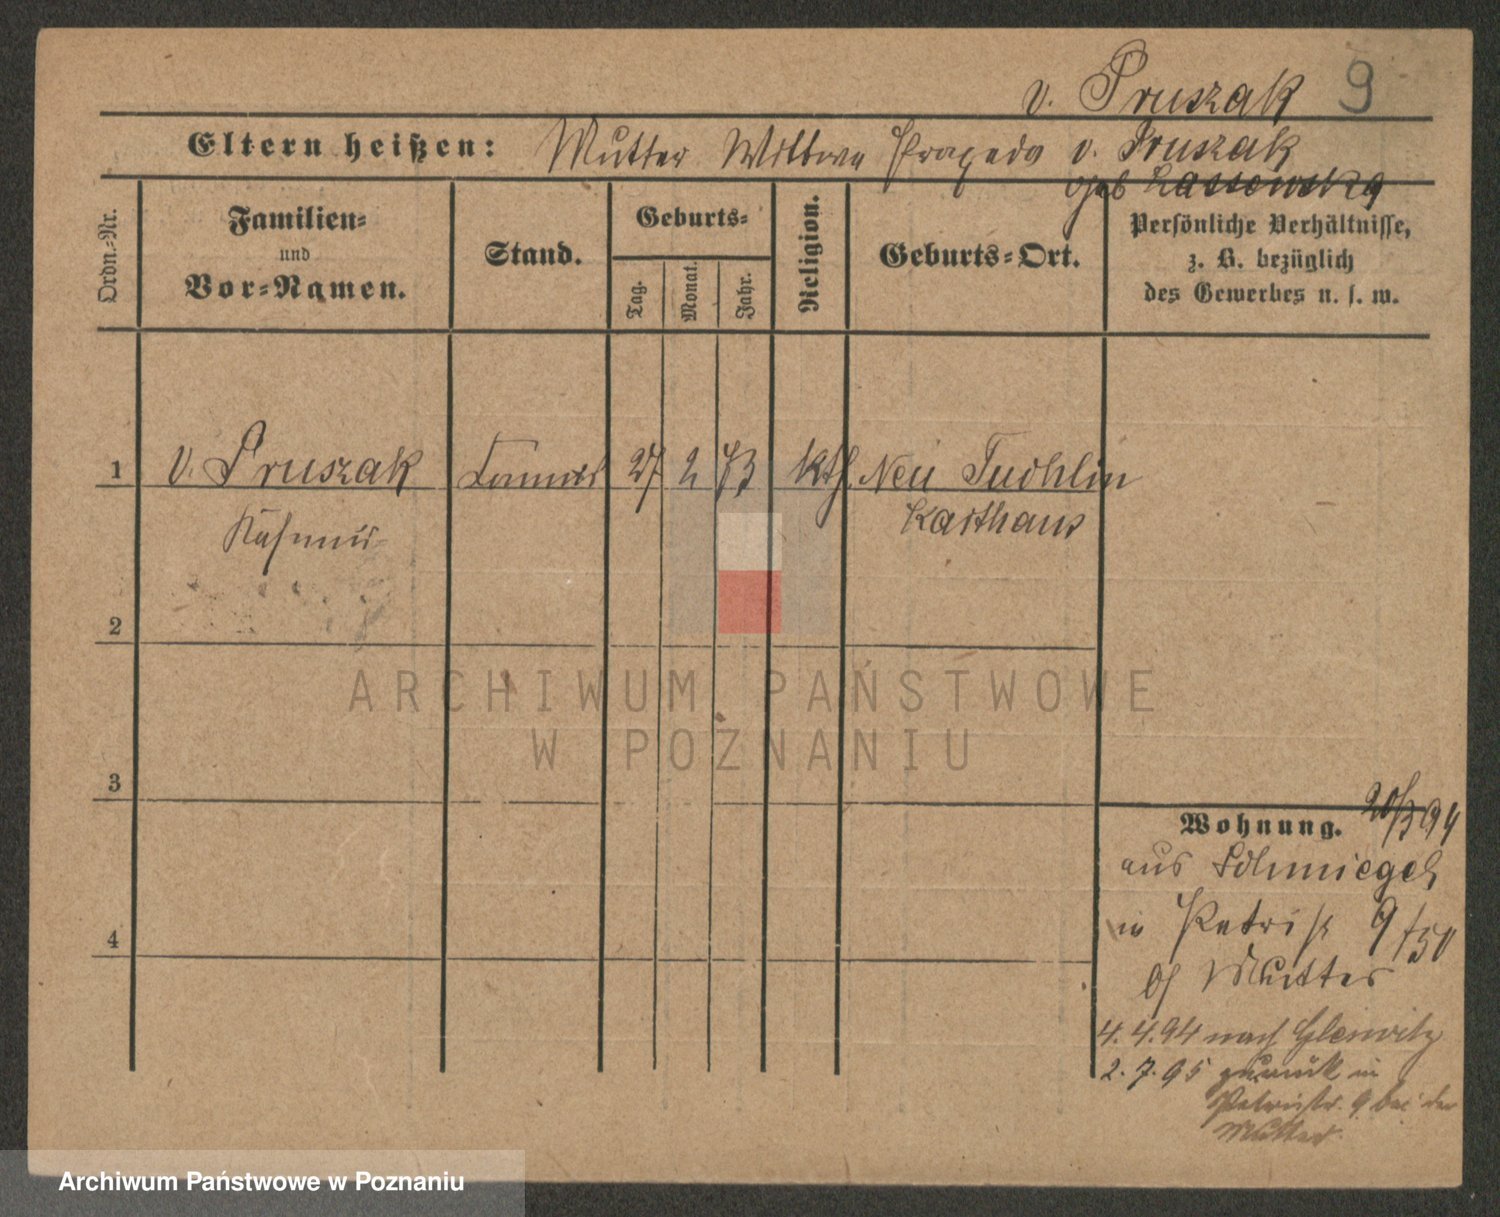 v. Pruszak 9
Eltern heißen: Mutter Wittwe Praxeda v. Pruszak
geb Lassewska
Ordn.-Nr.
Familien-
und
Vor-Namen.
Stand.
Geburts-
Tag.
Monat.
Jahr.
Religion.
Geburts-Ort.
Persönliche Verhältnisse,
z. B. bezüglich
des Gewerbes u. s. w.
1 v. Pruszak 27 2 73 kth. Neu Tuchlin
Kasimir Karthaus
2
3
4
Wohnung. 20/3 94
aus Schmiegel
in Petristr 9/50
b/ Mutter
4. 4. 94 nach Gleiwitz
2. 7. 95 zurück in
Petristr. 9 bei der
Mutter.
ARCHIWUM PAŃSTWOWE
W POZNANIU
Archiwum Państwowe w Poznaniu